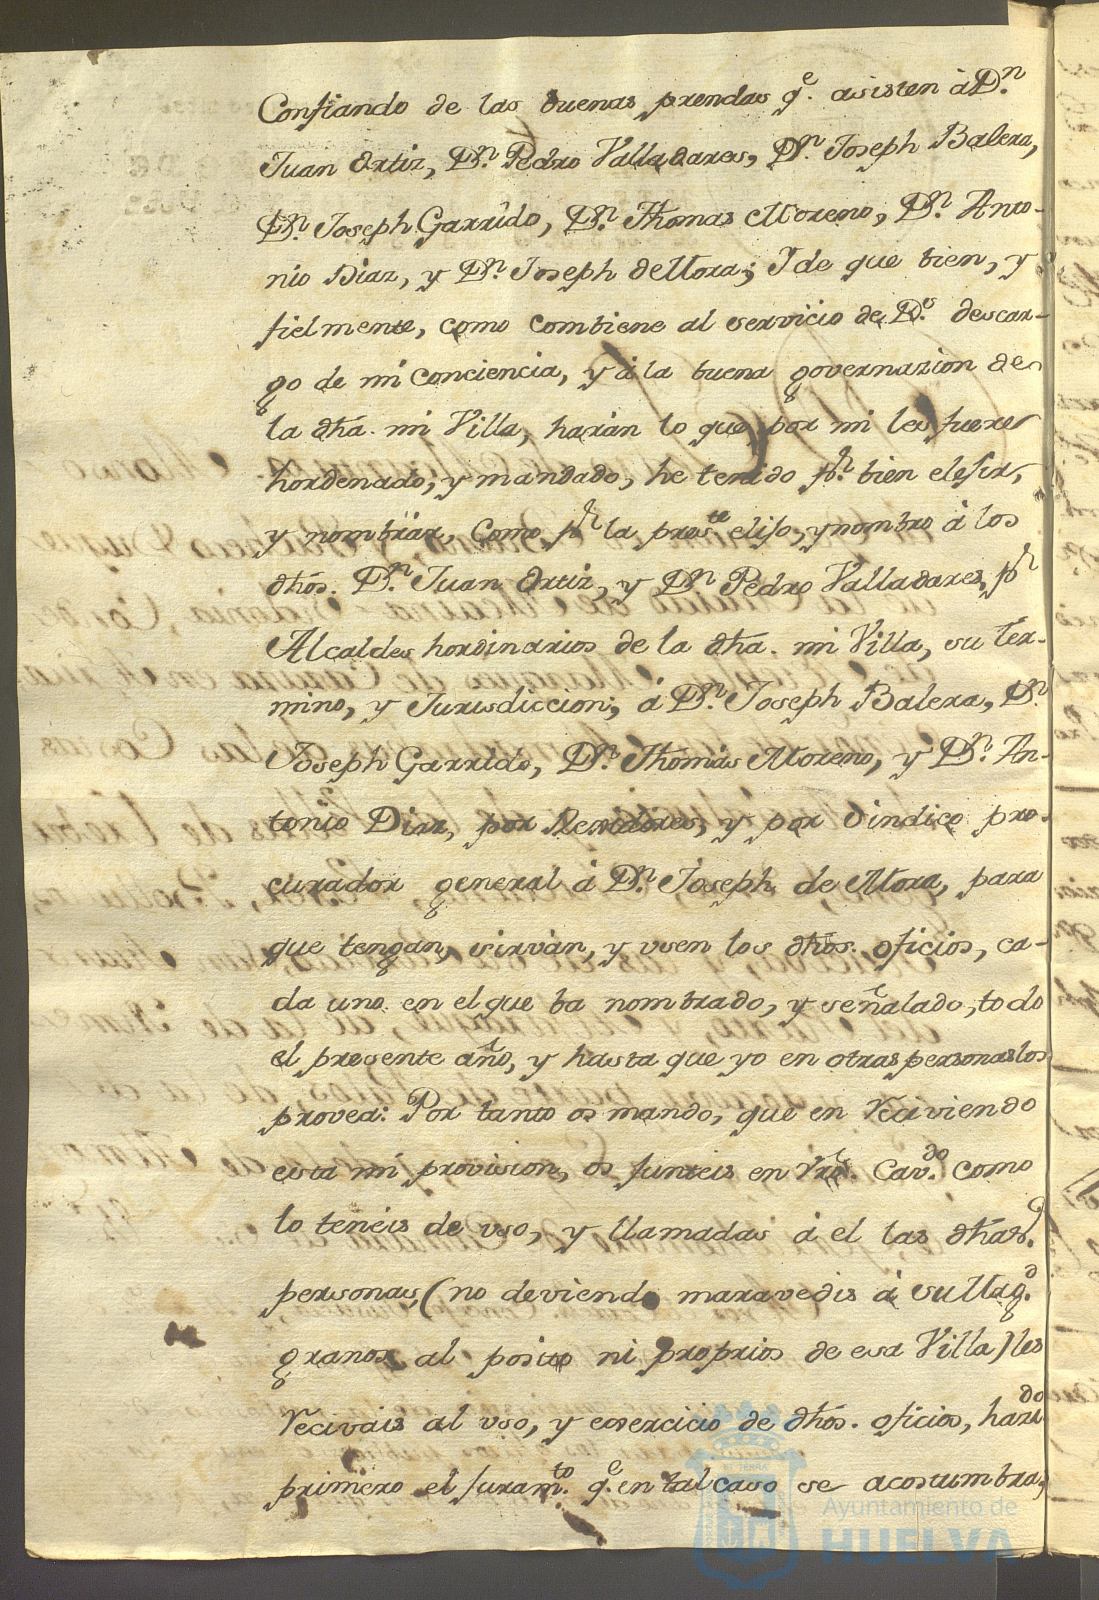 Confiando de las buenas prendas q.e asisten à D.n
Juan Ortiz, D.n Pedro Valladares, D.n Joseph Balera,
D.n Joseph Garrido, D.n Thomas Moreno, D.n Anto-
nio Diaz, y D.n Joseph de Mora; Y de que bien, y
fielmente, como combiene al servicio de D.s descar-
go de mi conciencia, y à la buena governazion de
la dha. mi Villa, harán lo que por mi les fuere
hordenado, y mandado, he tenido p.r bien elejir,
y nombrar, como p.r la pres.te elijo, y nombro á los
dhos. D.n Juan Ortiz, y D.n Pedro Valladares, p.r
Alcaldes hordinarios de la dha. mi Villa, su ter-
mino, y Jurisdiccion; á D.n Joseph Balera, D.n
Joseph Garrido, D.n Thomás Moreno, y D.n An-
tonio Diaz, por Rexidores, y por Sindico pro-
curador general á D.n Joseph de Mora, para
que tengan, sirvan, y usen los dhos. oficios, ca-
da uno en el que ba nombrado, y señalado, todo
el presente año, y hasta que yo en otras personas los
provea: Por tanto os mando, que en reciviendo
esta mi provision, os junteis en vro. Cav.do como
lo teneis de uso, y llamadas á el las dhas.
personas, (no deviendo maravedis á su Mag.d
granos al posito ni proprios de esa Villa) les
recivais al uso, y exercicio de dhos. oficios, haz.do
primero el juram.to q.e en tal caso se acostumbra,
Ayuntamiento de
HUELVA